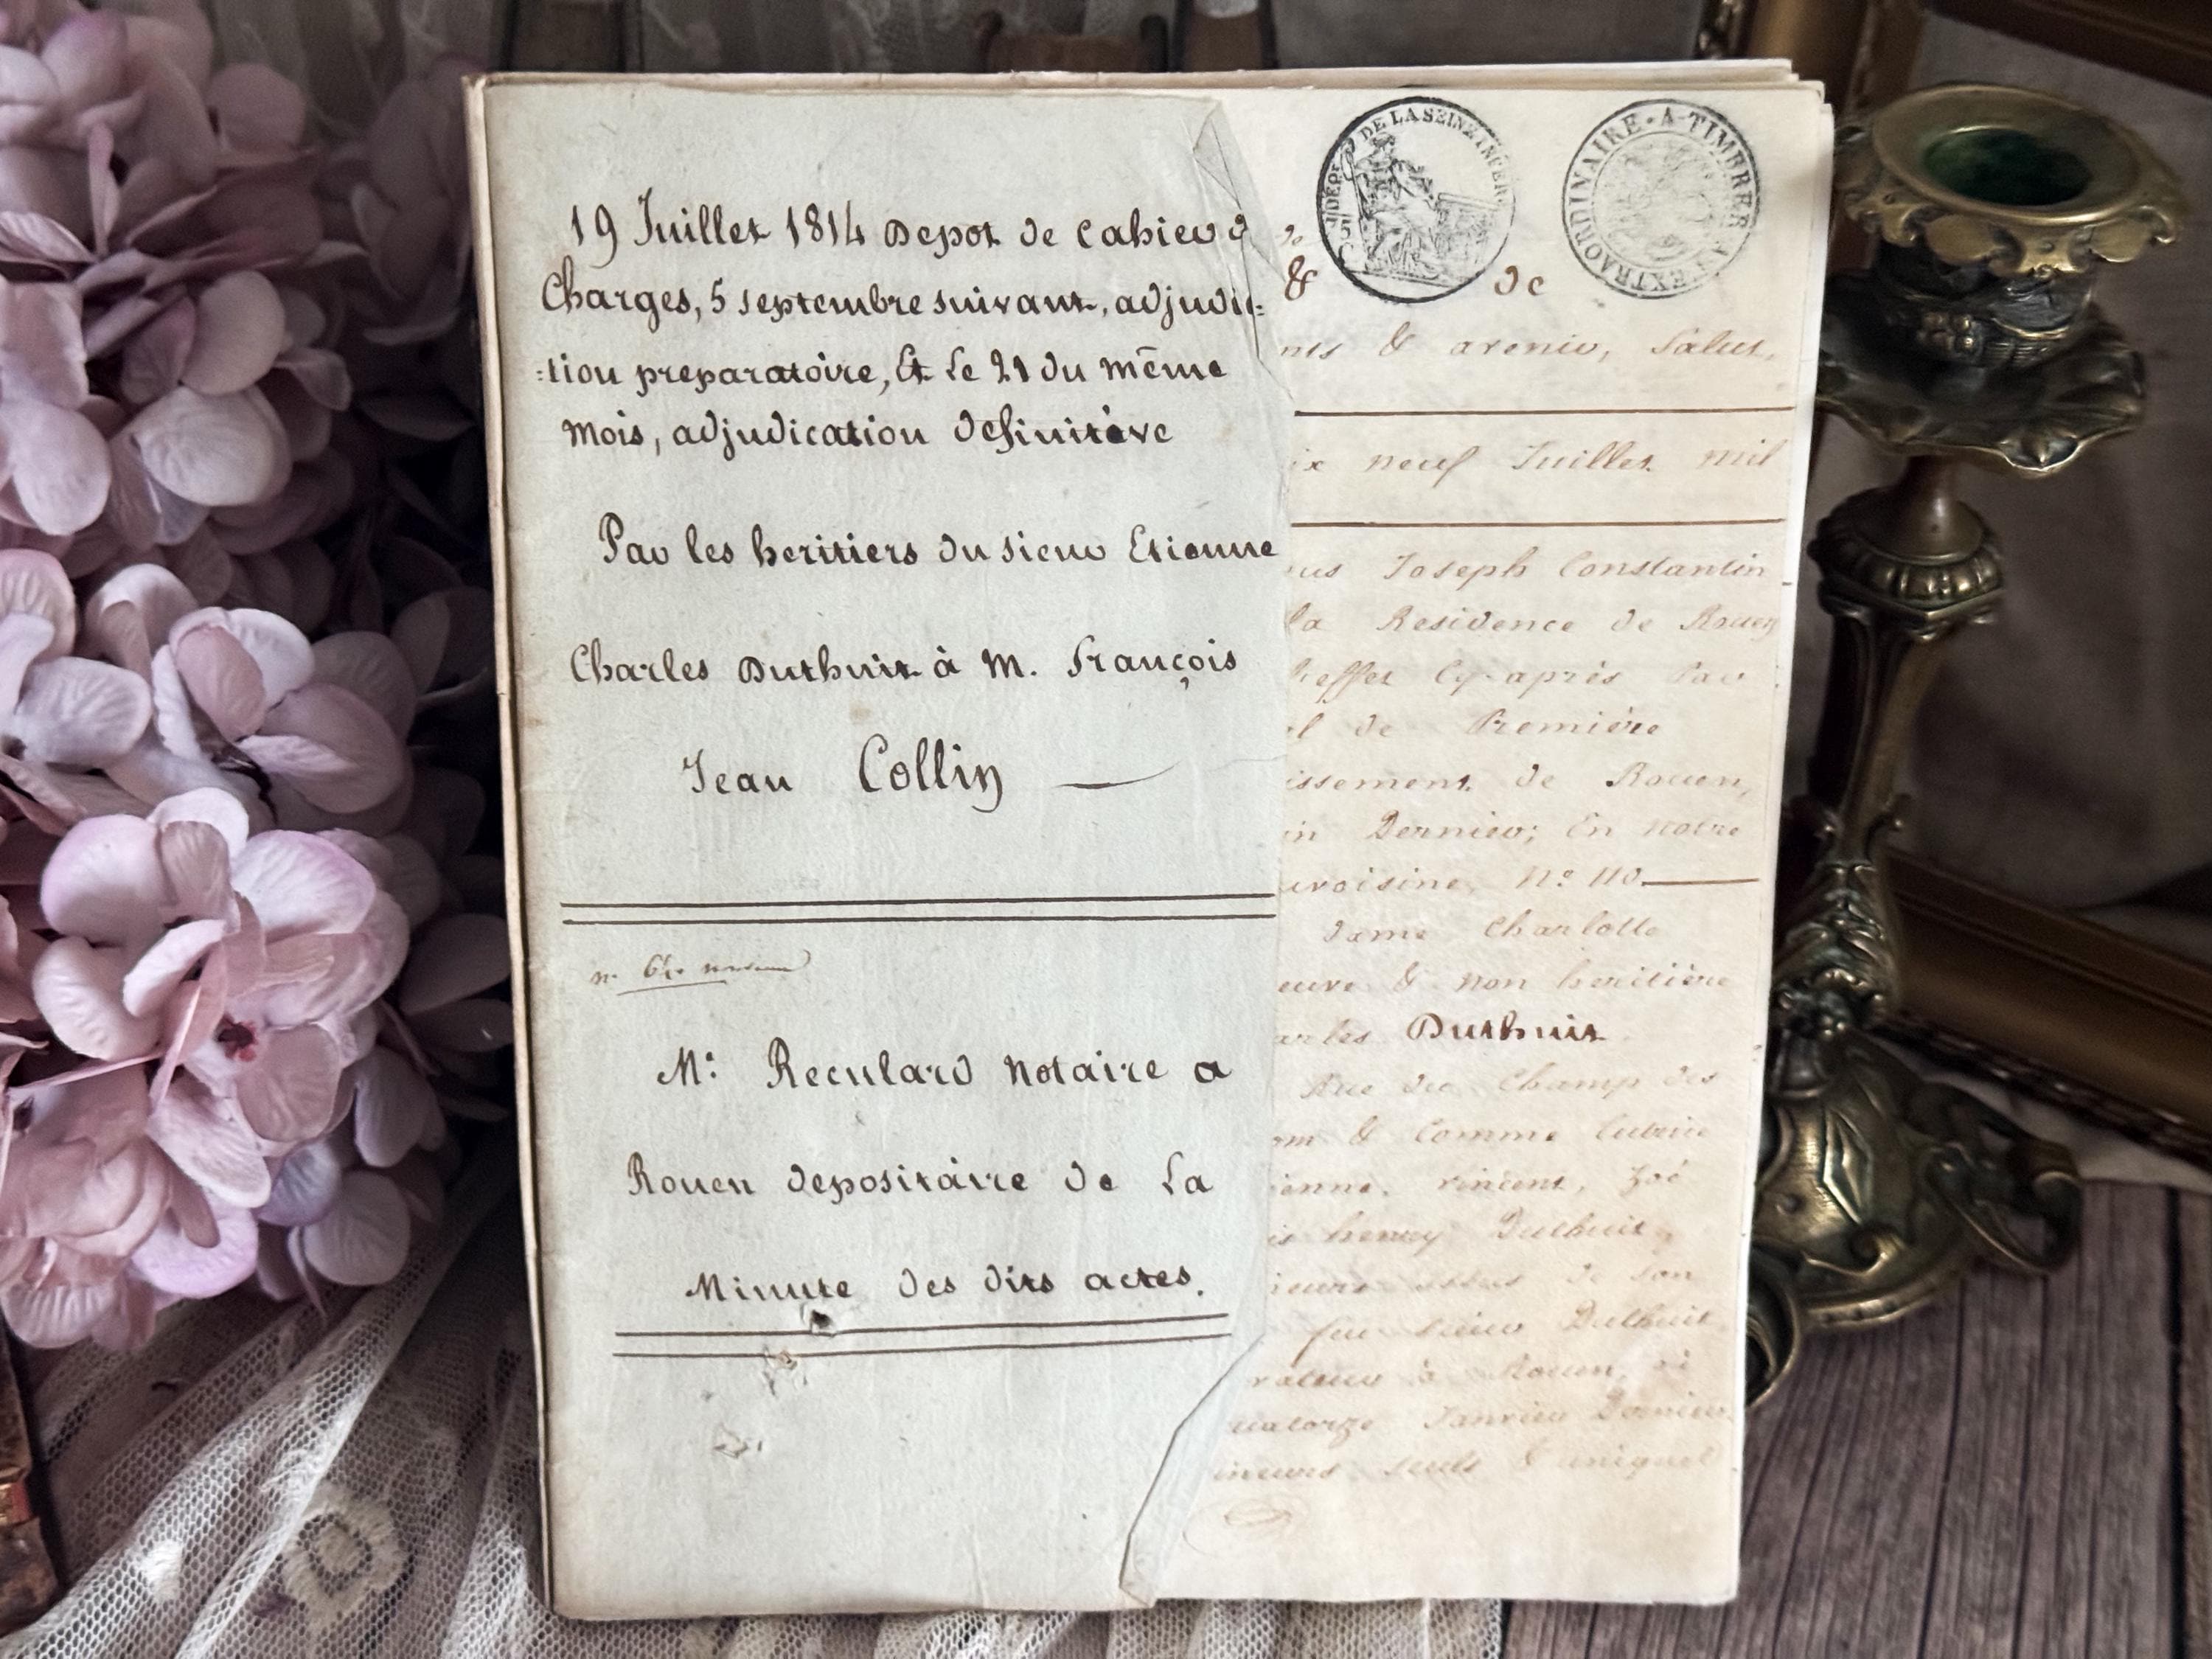 19 Juillet 1814 Depot de Cahier d
Charges, 5 septembre suivant, adjudic=
=tion preparatoire, Et Le 21 du même
mois, adjudication definitive
Par les heritiers du sieur Etienne
Charles Duthuit à M. François
Jean Collin
Me Reculard Notaire a
Rouen depositaire de La
Minute des dits actes.
DE LA SEINE INFERE
A TIMBRER A L'EXTRAORDINAIRE
& de
nts & avenir, Salut,
ix neuf Juillet mil
Joseph Constantin
la Residence de Rouen
l'effet Cy-après Par
l de Première
issement de Rouen,
in Dernier; En notre
uvoisine, No 110
dame Charlotte
euve & non heritière
arles Duthuit
Rue du Champ des
om & Comme tutrice
ienne, vincent, Zoé
henry Duthuit
ieurs issus de son
feu sieur Duthuit
à Rouen,
uatorze Janvier Dernier
ineurs seuls & uniques